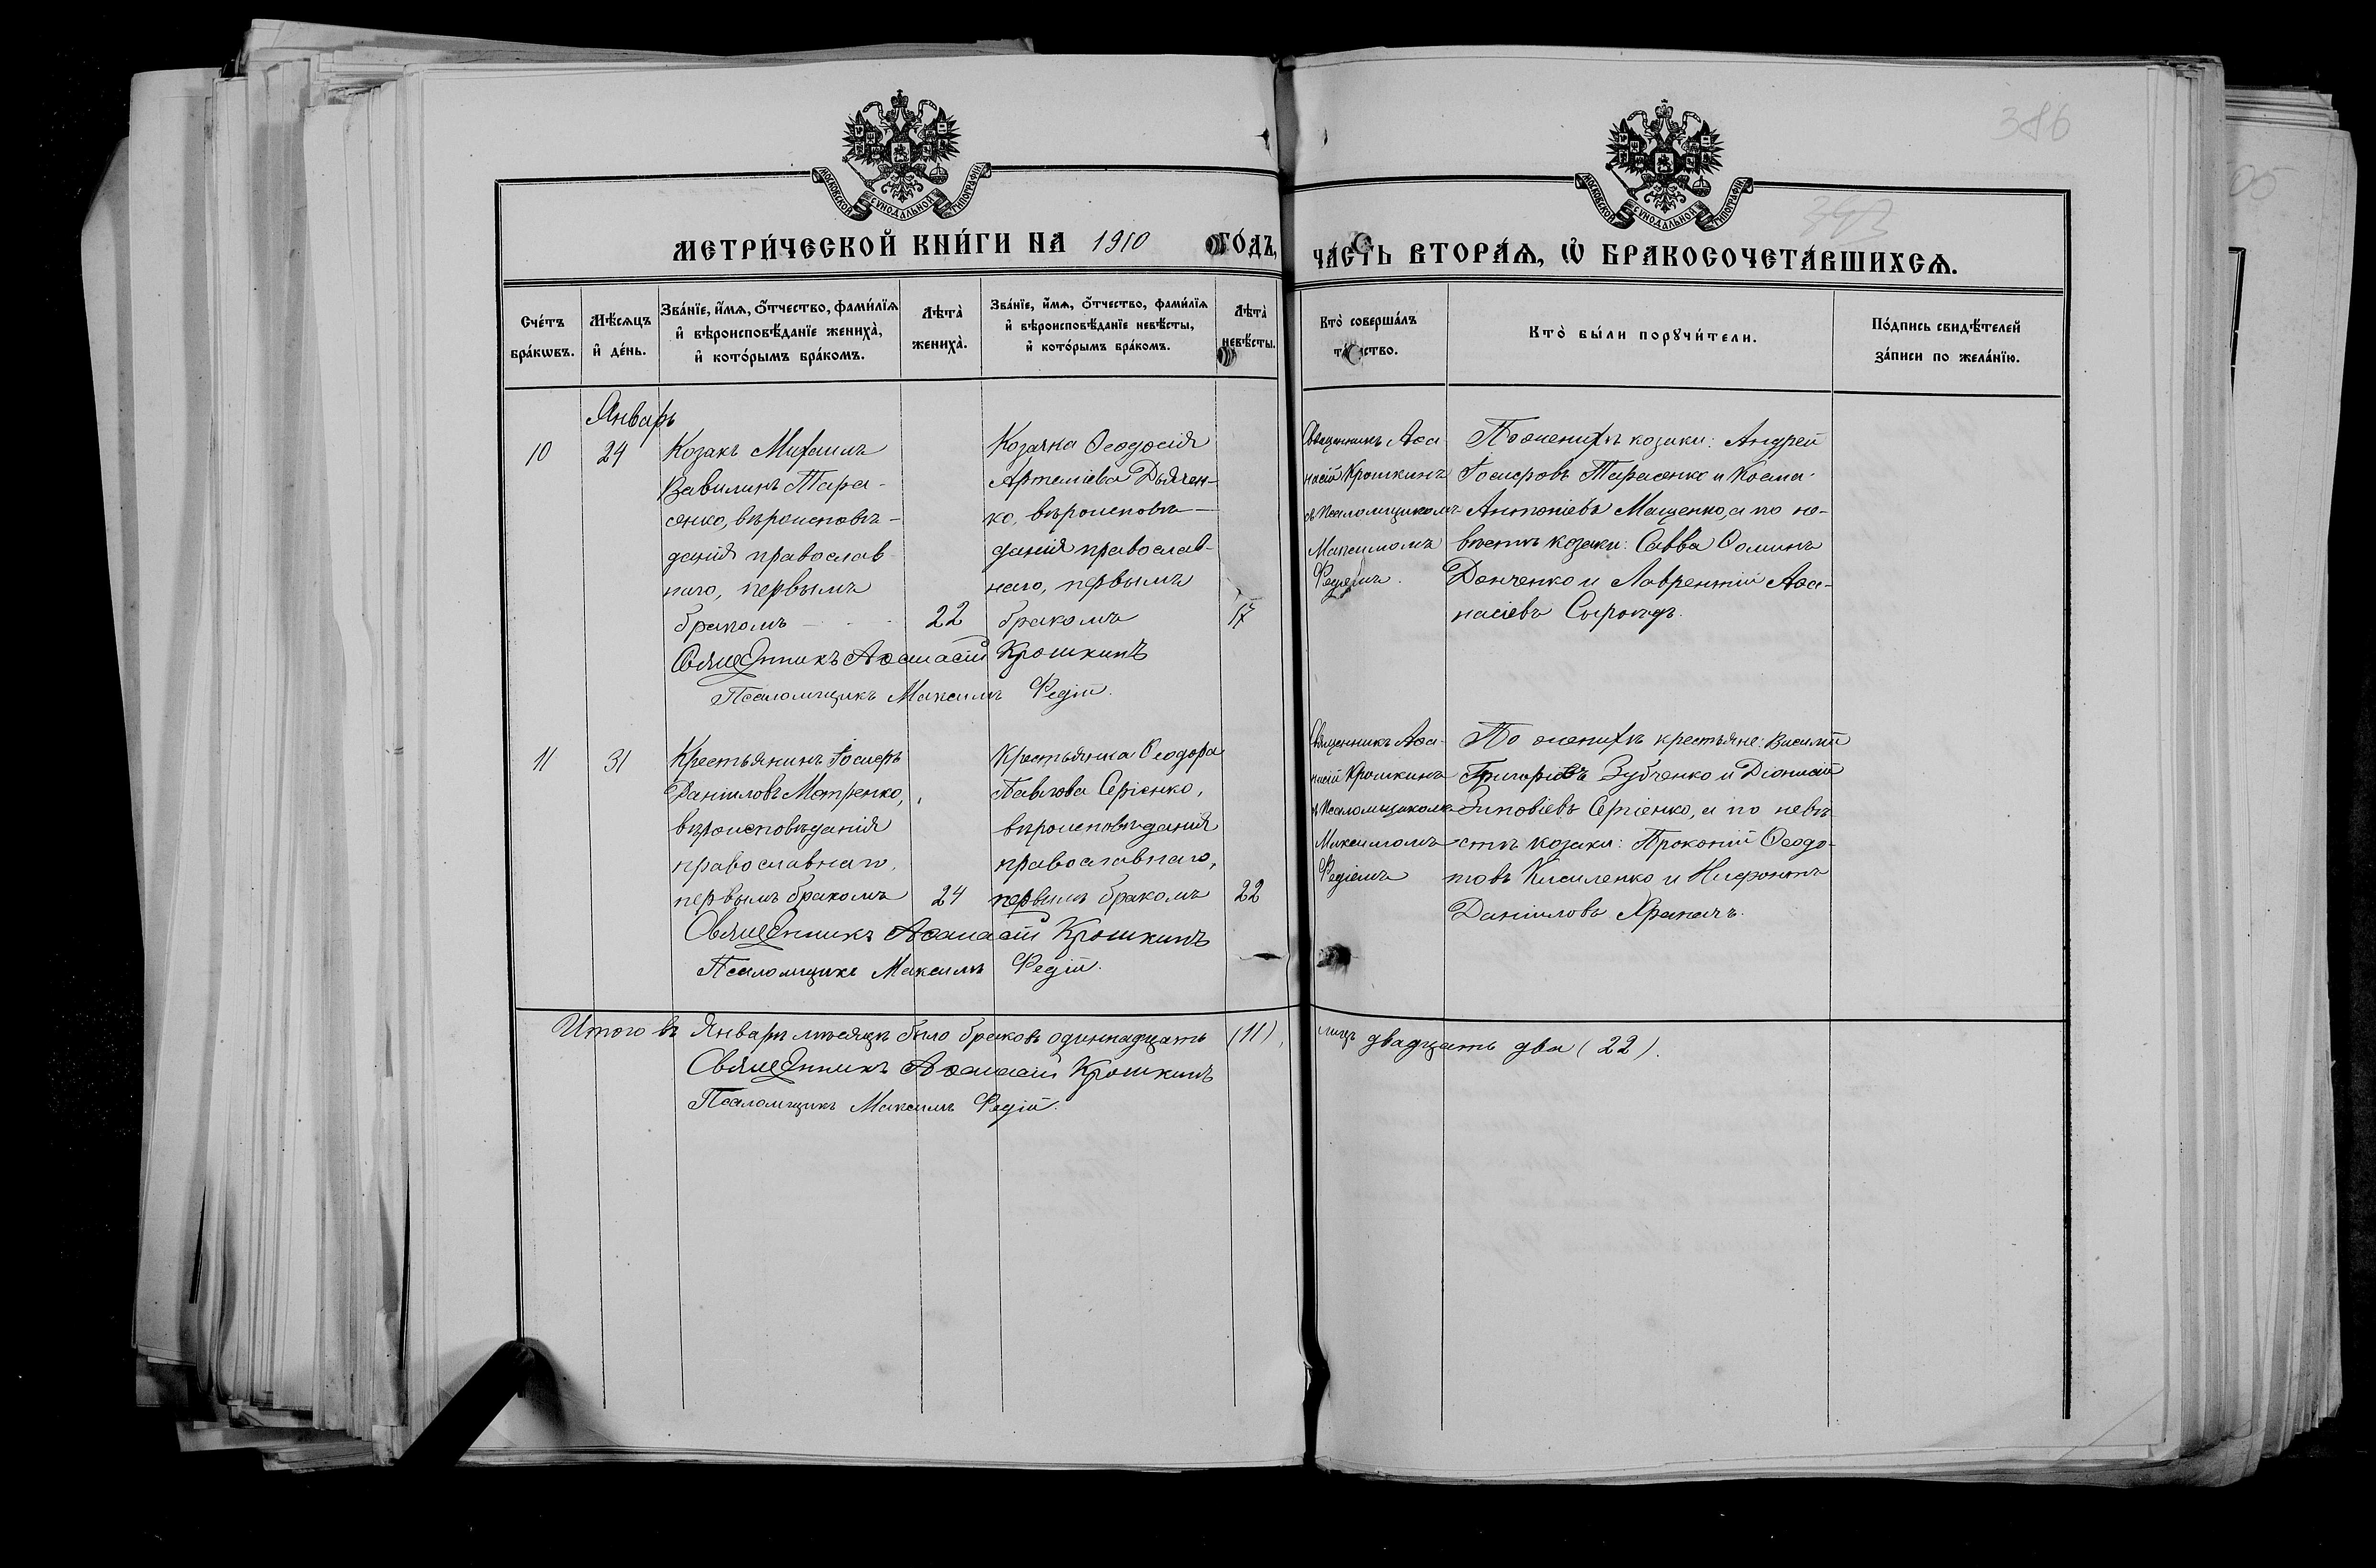 386
МОСКОВСКОЙ СУНОДАЛЬНОЙ ТИПОГРАФІИ
МОСКОВСКОЙ СУНОДАЛЬНОЙ ТИПОГРАФІИ
МЕТРИ́ЧЕСКОЙ КНИ́ГИ НА 1910 ГО́ДЪ,
ЧА́СТЬ ВТОРА́Ѧ, Ѿ БРАКОСОЧЕТА́ВШИХСѦ.
Сче́тъ бра́кѡвъ.
Мѣ́сѧцъ и҆ де́нь.
Зва́нїе, и҆́мѧ, ѻ҆́тчество, фами́лїѧ
и҆ вѣроисповѣ́данїе жениха̀,
и҆ кото́рымъ бра́комъ.
Лѣта̀ жениха̀.
Зва́нїе, и҆́мѧ, ѻ҆́тчество, фами́лїѧ
и҆ вѣроисповѣ́данїе невѣ́сты,
и҆ кото́рымъ бра́комъ.
Лѣта̀ невѣ́сты.
Кто̀ соверша́лъ
та́инство.
Кто̀ бы́ли порꙋчи́тели.
По́дпись свидѣ́телей
за́писи по жела́нїю.
Январь
10
24
Козакъ Михаилъ
Вавилинъ Тара-
сенко, вѣроисповѣ-
данія православ-
наго, первымъ
бракомъ
22
Козачка Ѳеодосія
Артеміева Дьячен-
ко, вѣроисповѣ-
данія православ-
наго, первымъ
бракомъ
17
Священникъ Аѳанасій Крошкинъ
Псаломщикъ Максимъ Федій.
Священникъ Аѳа-
насій Крошкинъ
съ Псаломщикомъ
Максимомъ
Федіемъ.
По женихѣ козаки: Андрей
Іосифовъ Тарасенко и Косма
Антоніевъ Мащенко, а по не-
вѣстѣ козаки: Савва Ѳоминъ
Донченко и Лаврентій Аѳа-
насіевъ Сыроѣдъ.
11
31
Крестьянинъ Іосифъ
Даніиловъ Мотренко,
вѣроисповѣданія
православнаго,
первымъ бракомъ
24
Крестьянка Ѳеодора
Павлова Сергіенко,
вѣроисповѣданія
православнаго,
первымъ бракомъ
22
Священникъ Аѳанасій Крошкинъ
Псаломщикъ Максимъ Федій.
Священникъ Аѳа-
насій Крошкинъ
съ Псаломщикомъ
Максимомъ
Федіемъ
По женихѣ крестьяне: Василій
Григоріевъ Зубченко и Діонисій
Зиновіевъ Сергіенко, а по невѣ-
стѣ козаки: Прокопій Ѳеодо-
товъ Кисиленко и Нифонтъ
Даніиловъ Храпачъ.
Итого въ Январѣ мѣсяцѣ было браковъ одиннадцать (11), лицъ двадцать два (22).
Священникъ Аѳанасій Крошкинъ
Псаломщикъ Максимъ Федій.